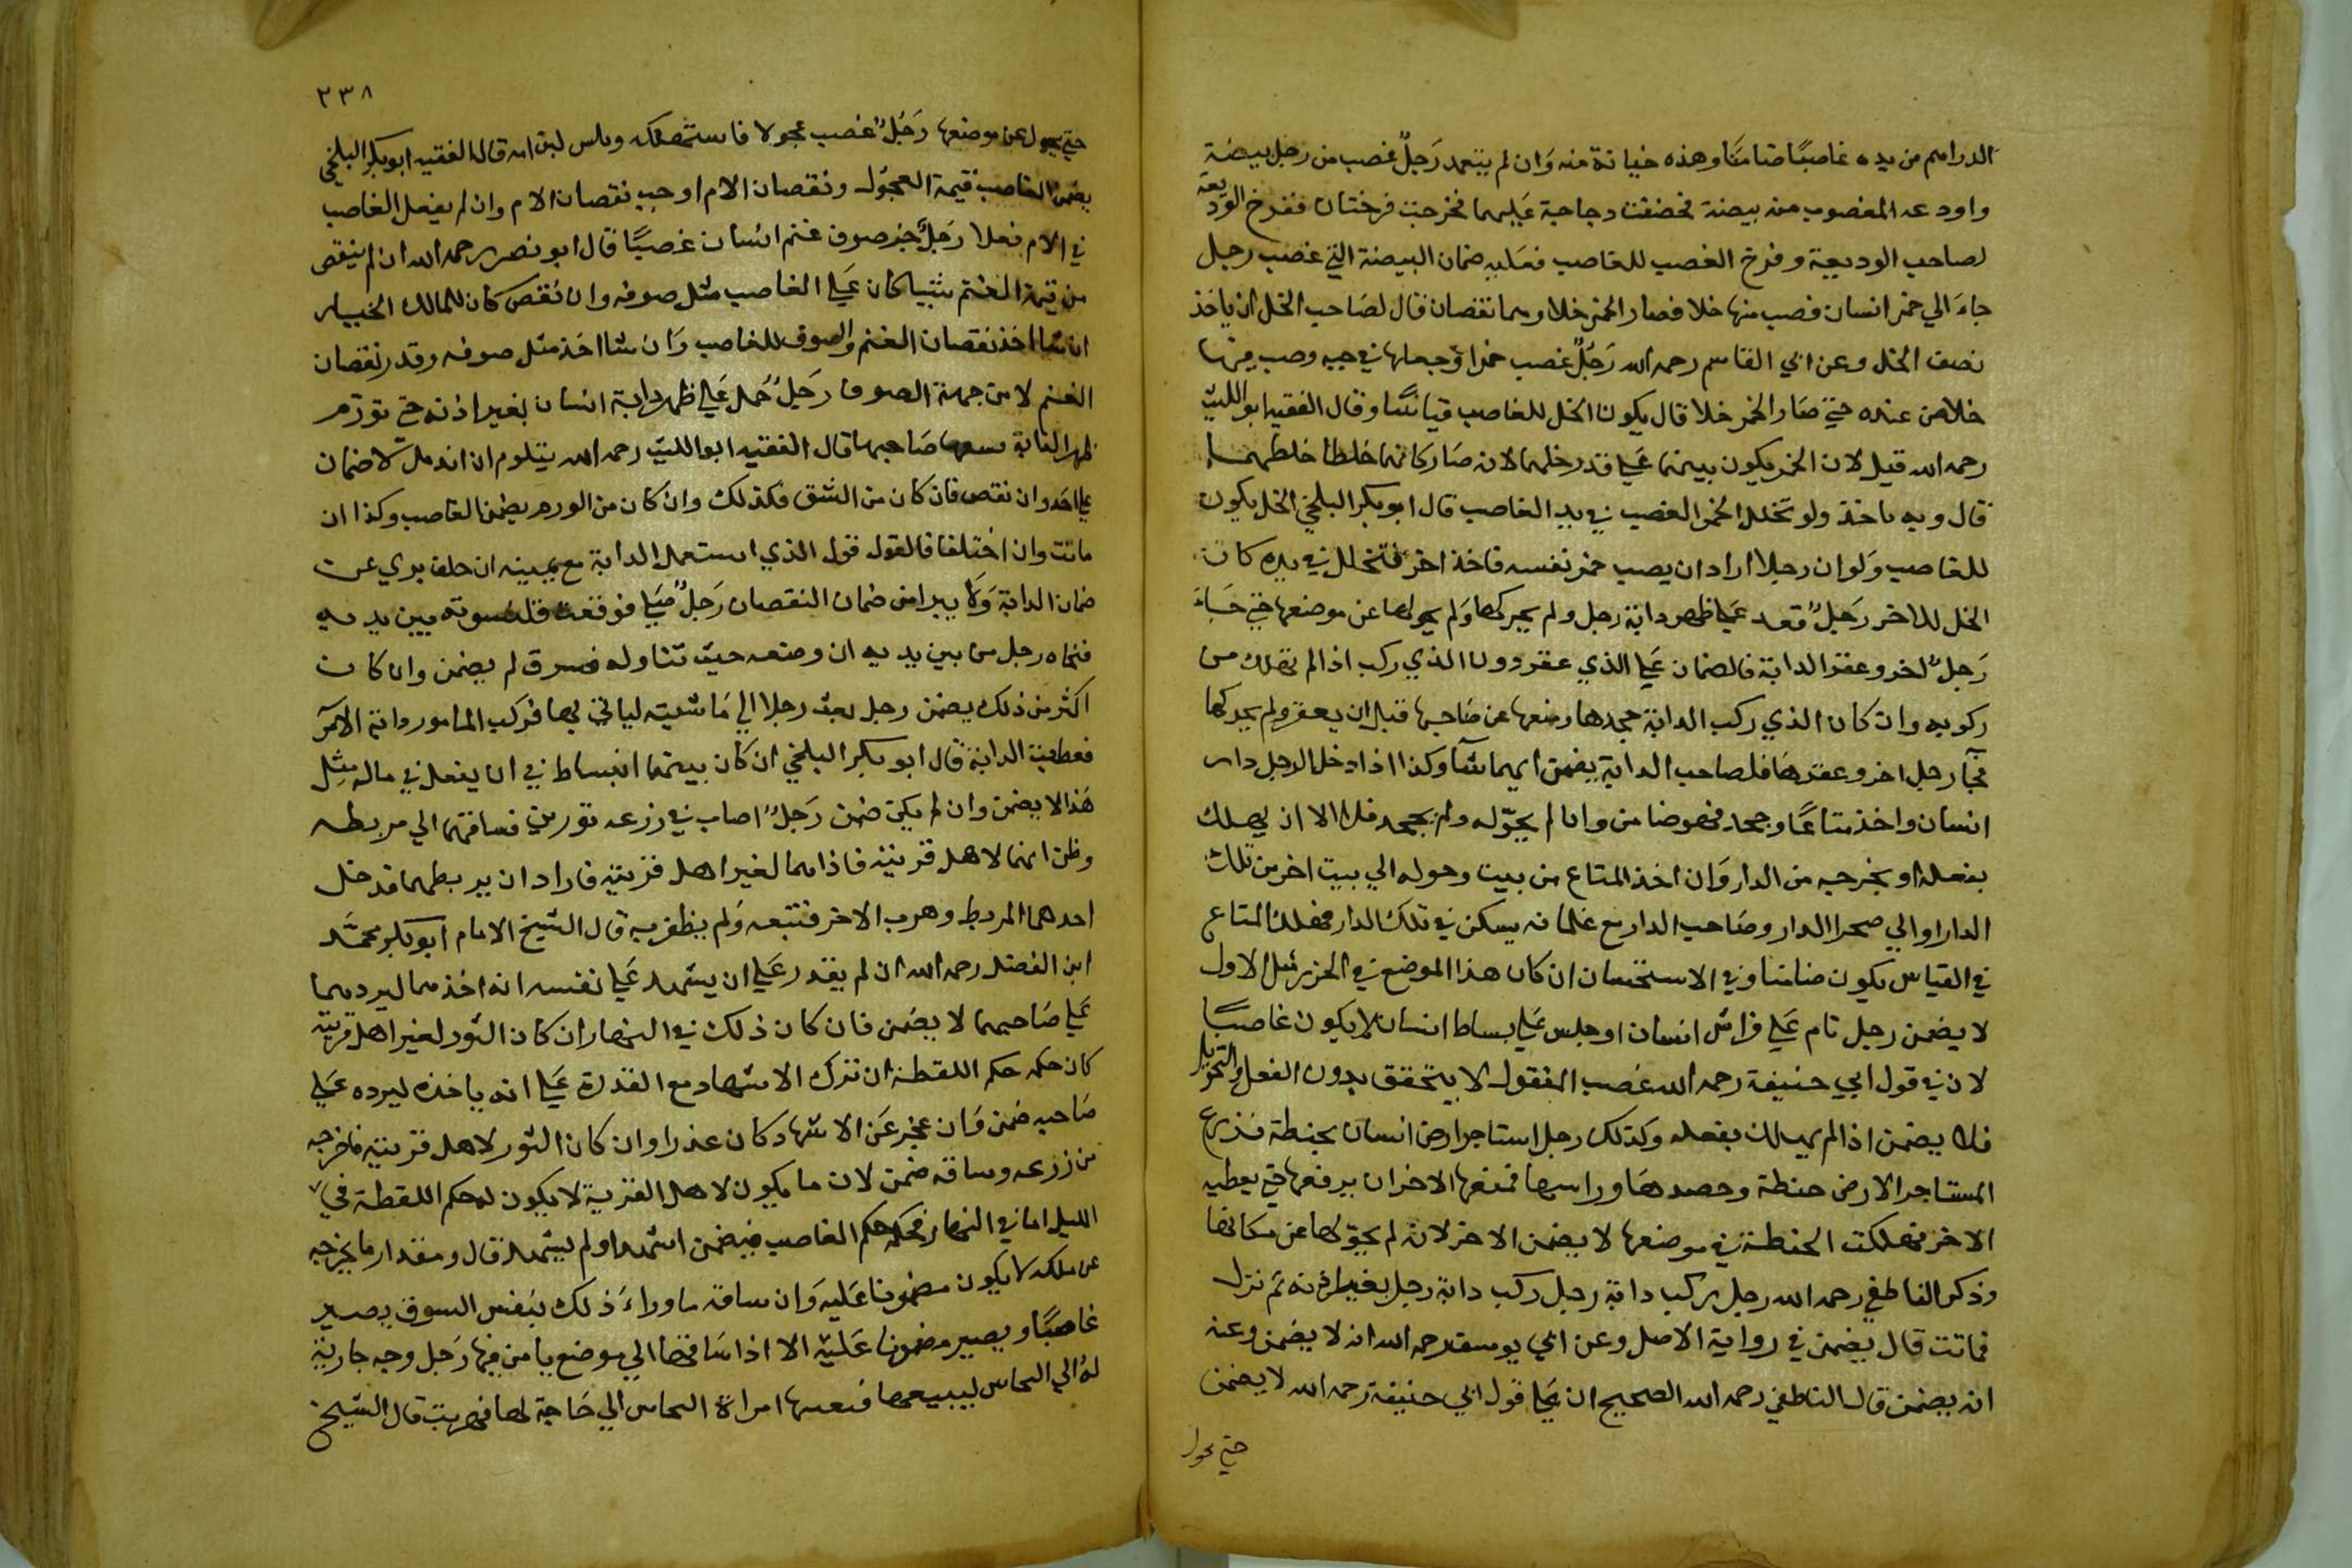 الدراهم من يده غاصبًا ضامنًا وهذه خيانة منه وَان لم يتعمد رَجلٌ غصب من رجل بيضة
واودعه المغصوب منه بيضة فحضنت دجاجة عَليهما فخرجت فرختان ففرخ الوديعة
لصاحب الوديعة وفرخ الغصب للغاصب وعَليه ضمان البيضة التي غصب رجل
جاءَ الي خمر انسان فصب منها خلا فصار الخمر خلا وهما نقصان قال لصَاحب الخل ان ياخذ
نصف الخل وعن ابي القاسم رحمه الله رَجُلٌ غصب خمرا وَجعلها في حبه وصب فيها
خلا من عنده حتي صَار الخمر خلا قال يكون الخل للغاصب قياسًا وقال الفقيه ابو الليث
رحمه الله قيل لان الخمر يكون بينهما عَلي قدر خلهما لانه صَار كانهما خلطا خلطهما
قال وبه ناخذ ولو تخلل الخمر الغصب في يد الغاصب قال ابو بكر البلخي الخل يكون
للغاصب وَلو ان رجلا اراد ان يصب خمر نفسه فاخذ اخر فتخلل في يده كان
الخل للاخر رَجلٌ قعد عَلي ظهر دابة رجل ولم يحركها وَلم يحولها عن موضعها حتي جَاءَ
رَجلٌ اخر وعقر الدابة فالضمان عَلي الذي عقر دون الذي ركب اذا لم تهلك من
ركوبه وان كان الذي ركب الدابة جحدها ومنعها عن صَاحبها قبل ان يعقر ولم يحركها
فجآ رجل اخر وعقرهَا فلصاحب الدابة يضمن ايهما شآ وكذا اذا دخل الرجل دار
انسان واخذ متاعًا وجحد فهو ضامن وان لم يحوّله ولم يجحد فلا الا ان يهلك
بفعله او يخرجه من الدار وَان اخذ المتاع من بيت وحوله الي بيت اخر من تلك
الدار او الي صحرا الدار وصَاحب الدار مع غلمانه يسكن في تلك الدار فهلك المتاع
في القياس يكون ضامنا وفي الاستحسان ان كان هذا الموضع في الحرز مثل الاول
لا يضمن رجل نام عَلي فراش انسان او جلس عَلي بساط انسان لا يكون غاصبًا
لان في قول ابي حنيفة رحمه الله غصب المنقول لا يتحقق بدون الفعل والتحويل
فلا يضمن اذا لم يهلك بفعله وكذلك رجل استاجر ارض انسان بحنطة فزرع
المستاجر الارض حنطة وحصدهَا وداسها فمنعها الاخر ان يرفعها حتي يعطيه
الاخر فهلكت الحنطة في موضعها لا يضمن الاخر لانه لم يحوّلها عن مكانها
وذكر الناطفي رحمه الله رجل يركب دابة رجل ركب دابة رجل بغير اذنه ثم نزل
فماتت قال يضمن في رواية الاصل وعن ابي يوسف رحمه الله انه لا يضمن وعنه
انه يضمن قال الناطفي رحمه الله الصحيح ان عَلي قول ابي حنيفة رحمه الله لا يضمن
حتي يحول
٢٣٨
حتي يحول عن موضعها رَجُلٌ غصب عجولا فاستهلكه ويبس لبن امه قال الفقيه ابو بكر البلخي
يضمن الغاصب قيمة العجول ونقصان الام اوجب نقصان الام وان لم يفعل الغاصب
في الام فعلا رَجلٌ جز صوف غنم انسان غصبًا قال ابو نصر رحمه الله ان لم ينقص
من قيمة الغنم شيا كان عَلي الغاصب مثل صوفه وان نقص كان للمالك الخيار
ان شا اخذ نقصان الغنم والصوف للغاصب وَان شا اخذ مثل صوفه وقدر نقصان
الغنم لا من جهة الصوف رَجلٌ حمل عَلي ظهر دابة انسان بغير اذنه حتي تورم
ظهر الدابة صَاحبها قال الفقيه ابو الليث رحمه الله يتلوم ان اندمل لا ضمان
علي احد وان نقص فان كان من الشق فكذلك وان كان من الورم يضمن الغاصب وكذا ان
ماتت وان اختلفا فالقول قول الذي استعمل الدابة مع يمينه ان حلف بري عن
ضمان الدابة وَلا يبرا من ضمان النقصان رَجلٌ صَلي فوقعت قلنسوته بين يديه
فنحاه رجل من بين يديه ان وضعه حيث تناوله فسرق لم يضمن وان كان
اكثر من ذلك يضمن رجل بعث رجلا الي مَاشيته لياتي بها فركب المامور دابة الآمر
فعطبت الدابة قال ابو بكر البلخي ان كان بينهما انبساط في ان يفعل في ماله مثل
هَذا لا يضمن وان لم يكن ضمن رَجلٌ اصاب في زرعه ثورين فساقهما الي مربطه
وظن انهما لاهل قريته فاذا هما لغير اهل قريته فاراد ان يربطهما فدخل
احدهما المربط وهرب الاخر فتتبعه وَلم يظفر به قال الشيخ الامام ابو بكر محمّد
ابن الفضل رحمه الله ان لم يقدر عَلي ان يشهد عَلي نفسه انه اخذهما ليردهما
عَلي صَاحبهما لا يضمن فان كان ذلك في النهار ان كان الثور لغير اهل قريته
كان حكمه حكم اللقطة ان ترك الاشهاد مع القدرة عَلي انه ياخذه ليرده عَلي
صَاحبه ضمن وَان عجز عَن الاشهاد كان عذرا وان كان الثور لاهل قريته فاخرجه
من زرعه وساقه ضمن لان ما يكون لاهل القرية لا يكون له حكم اللقطة في
الليل اما في النهار فحكمه حكم الغاصب فيضمن اشهد او لم يشهد قال ومقدار ما يخرجه
عن ملكه لا يكون مضمونا عَليه وَان ساقه ما وراءَ ذلك بنفس السوق يصير
غاصبًا ويصير مضمونا عَليْه الا اذا سَاقها الي موضع يامن فيها رَجل وجه جارية
لهُ الي النخاس ليبيعها فبعثها امراة النخاس الي حَاجة لها فهربت قال الشيخ